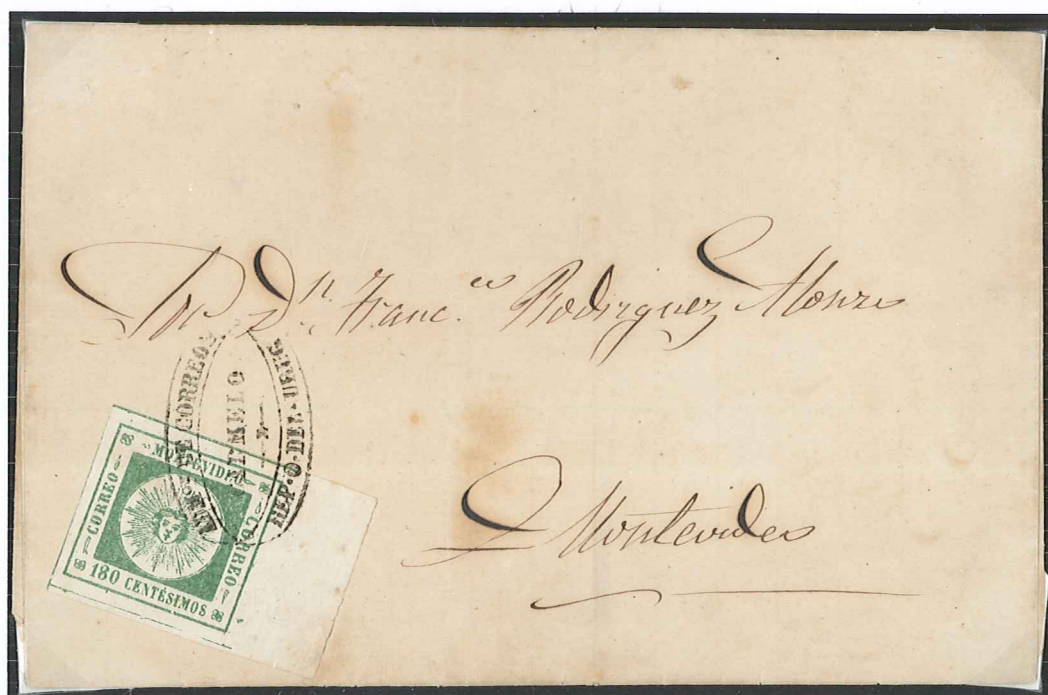 Sor Dn. Francco Rodriguez Alonzo
Montevideo
CORREOS
REP. O. DEL URUG
MONTEVIDEO
CORREO
CORREO
180 CENTÉSIMOS